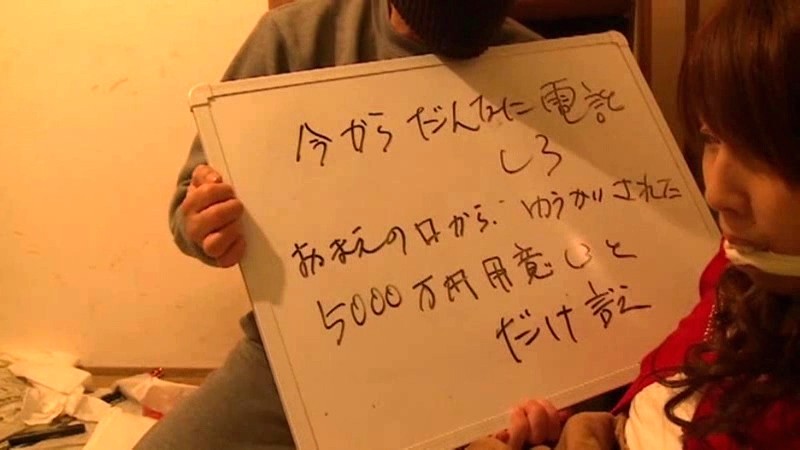 今からだんなに電話
しろ
おまえの口から、ゆうかいされた
5000万円用意しろと
だけ言え